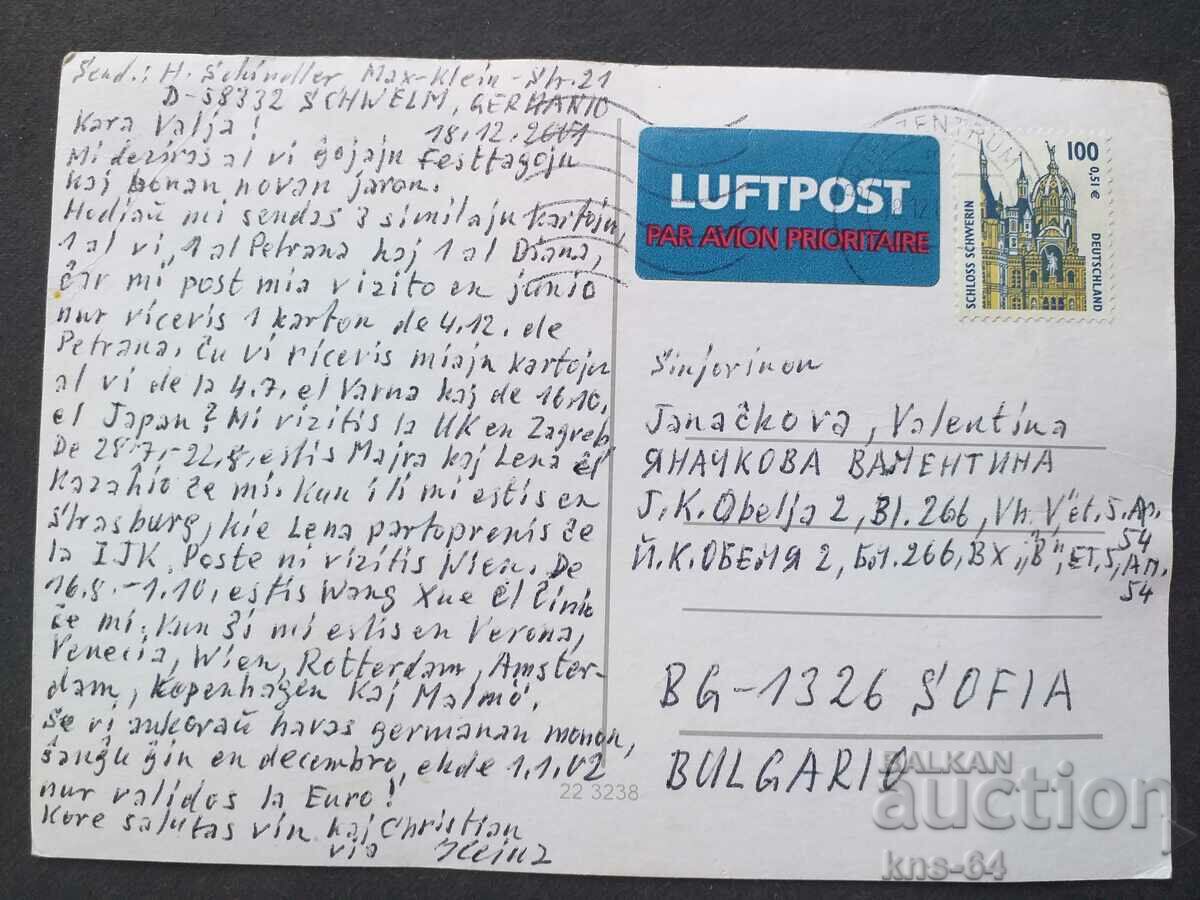 Send.: H. Schindler, Max-Klein-Str. 21
D-58332 SCHWELM, GERMANIO
Kara Valja! 18.12.2001
Mi deziras al vi ĝojajn Festtagojn
kaj bonan novan jaron.
Hodiaŭ mi sendas 3 similajn kartojn,
1 al vi, 1 al Petrana kaj 1 al Diana,
ĉar mi post mia vizito en junio
nur ricevis 1 karton de 4.12. de
Petrana. Ĉu vi ricevis miajn kartojn
al vi de la 4.7. el Varna kaj de 16.10.
el Japan? Mi vizitis la UK en Zagreb.
De 28.7.-22.8. estis Majra kaj Lena el
Kazaĥio ĉe mi. Kun ili mi estis en
Strasburg, kie Lena partoprenis ĉe
la IJK. Poste ni vizitis Wien. De
16.8.-1.10. estis Wang Xue el Ĉinio
ĉe mi. Kun ŝi mi estis en Verona,
Venecia, Wien, Rotterdam, Amster-
dam, Kopenhagen kaj Malmö.
Se vi ankoraŭ havas germanan monon,
ŝanĝu ĝin en decembro, ekde 1.1.02
nur validos la Euro!
Kore salutas vin kaj Christian
via Heinz
22 3238
LUFTPOST
PAR AVION PRIORITAIRE
ZENTRUM
100
0,51 €
SCHLOSS SCHWERIN
DEUTSCHLAND
Sinjorinon
Janačkova, Valentina
ЯНАЧКОВА ВАМЕНТИНА
J.K. Obelja 2, Bl. 266, Vh. V, et. 5, Ap.
54
Й.К. ОБЕМЯ 2, БМ. 266, ВХ „В", ЕТ. 5, АП.
54
BG-1326 SOFIA
BULGARIO
BALKAN
auction
kns-64